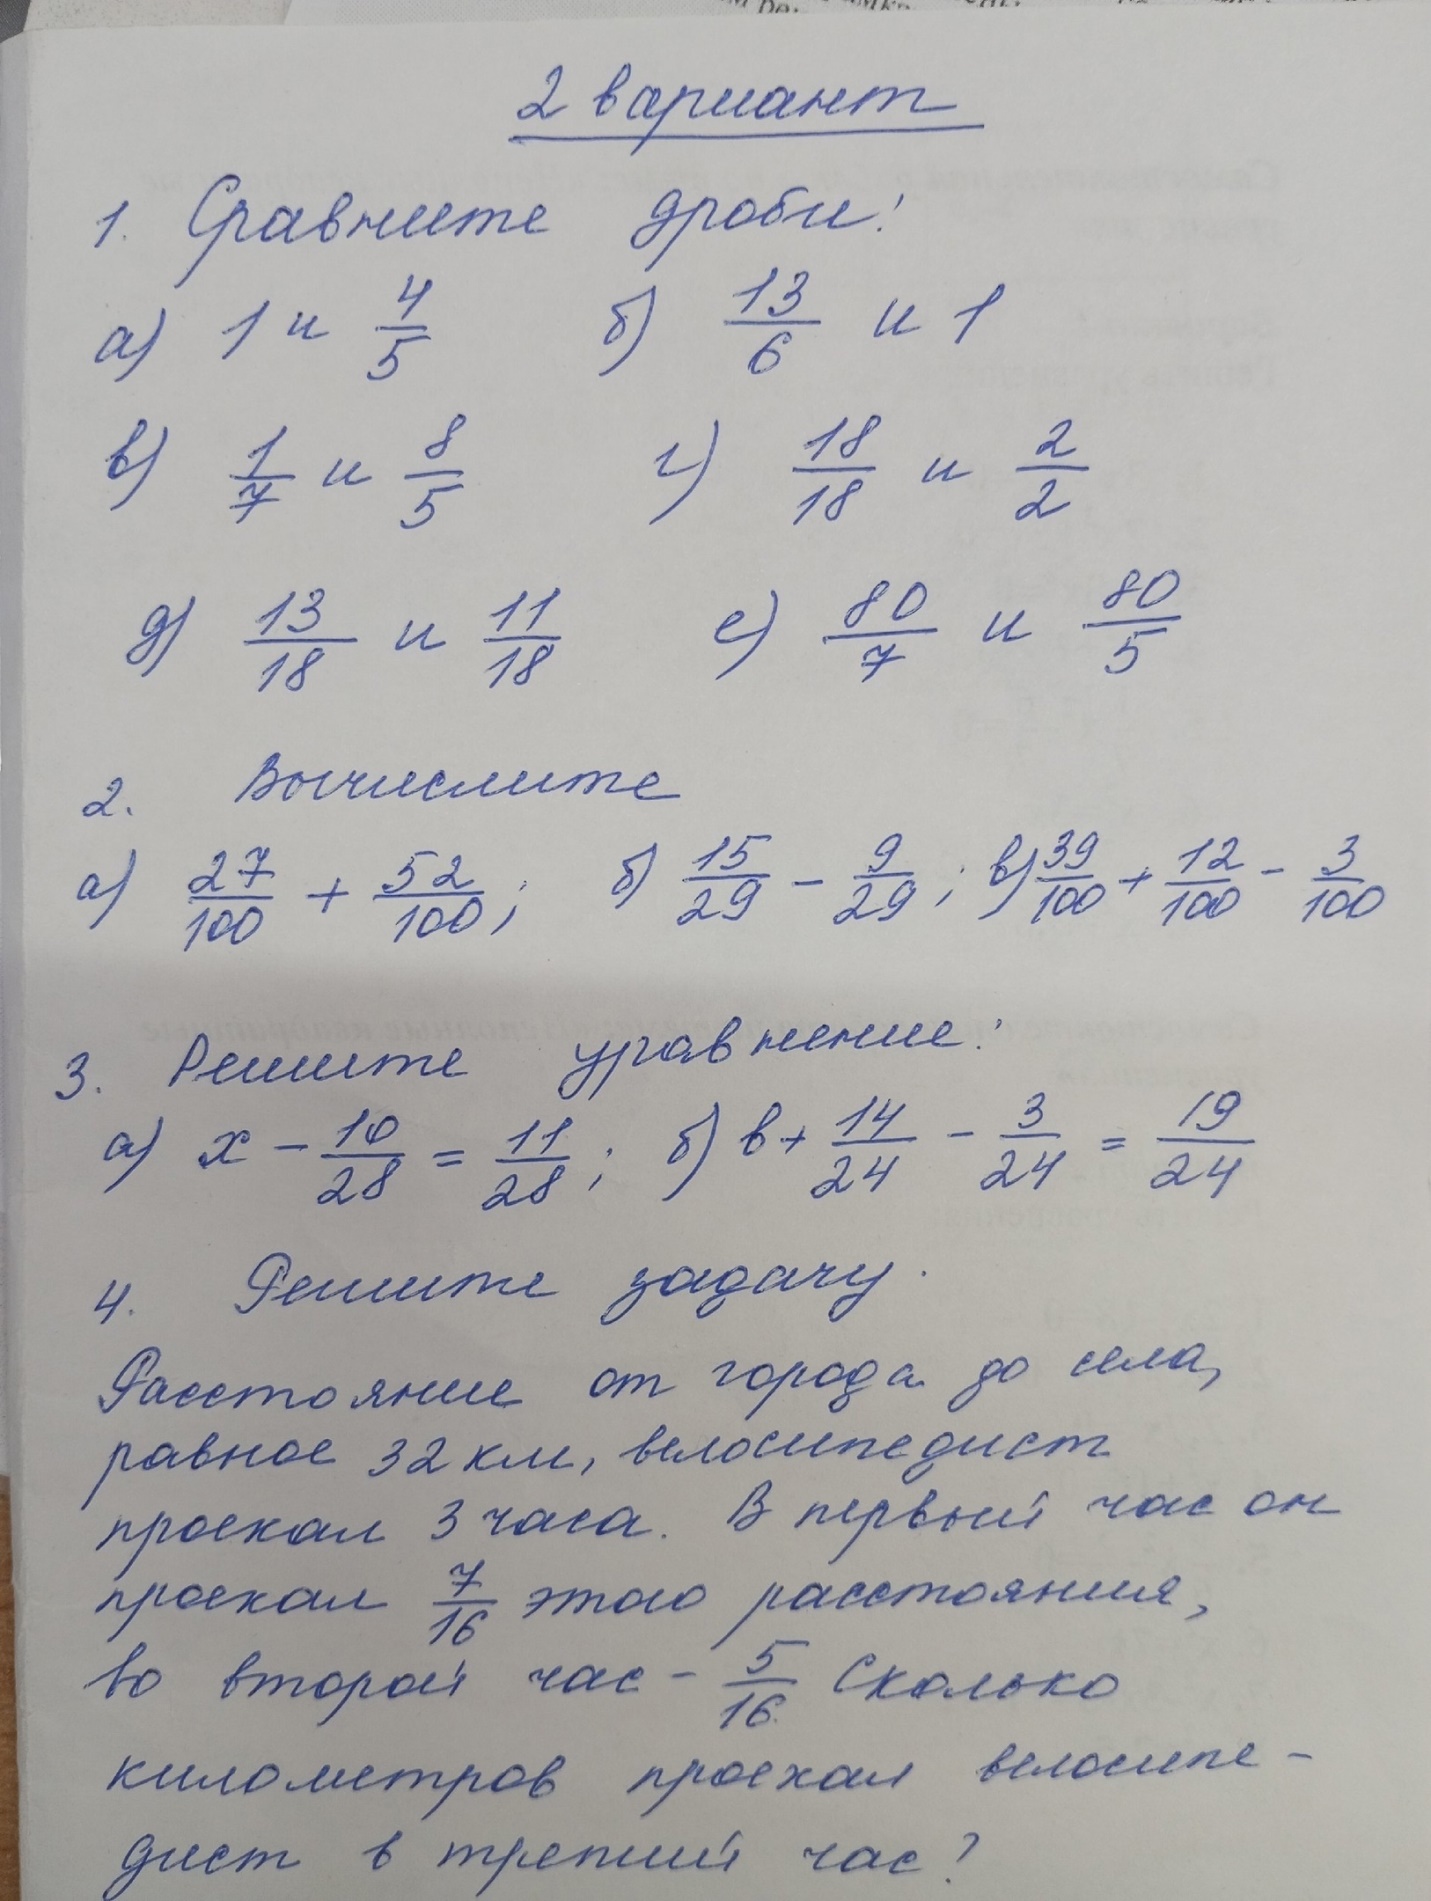 2 вариант
1. Сравните дроби:
а) 1 и 4/5 б) 13/6 и 1
в) 1/7 и 8/5 г) 18/18 и 2/2
д) 13/18 и 11/18 е) 80/7 и 80/5
2. Вычислите
а) 27/100 + 52/100; б) 15/29 - 9/29; в) 39/100 + 12/100 - 3/100
3. Решите уравнение:
а) x - 10/28 = 11/28; б) в + 14/24 - 3/24 = 19/24
4. Решите задачу.
Расстояние от города до села,
равное 32 км, велосипедист
проехал 3 часа. В первый час он
проехал 7/16 этого расстояния,
во второй час - 5/16 Сколько
километров проехал велосипе-
дист в третий час?